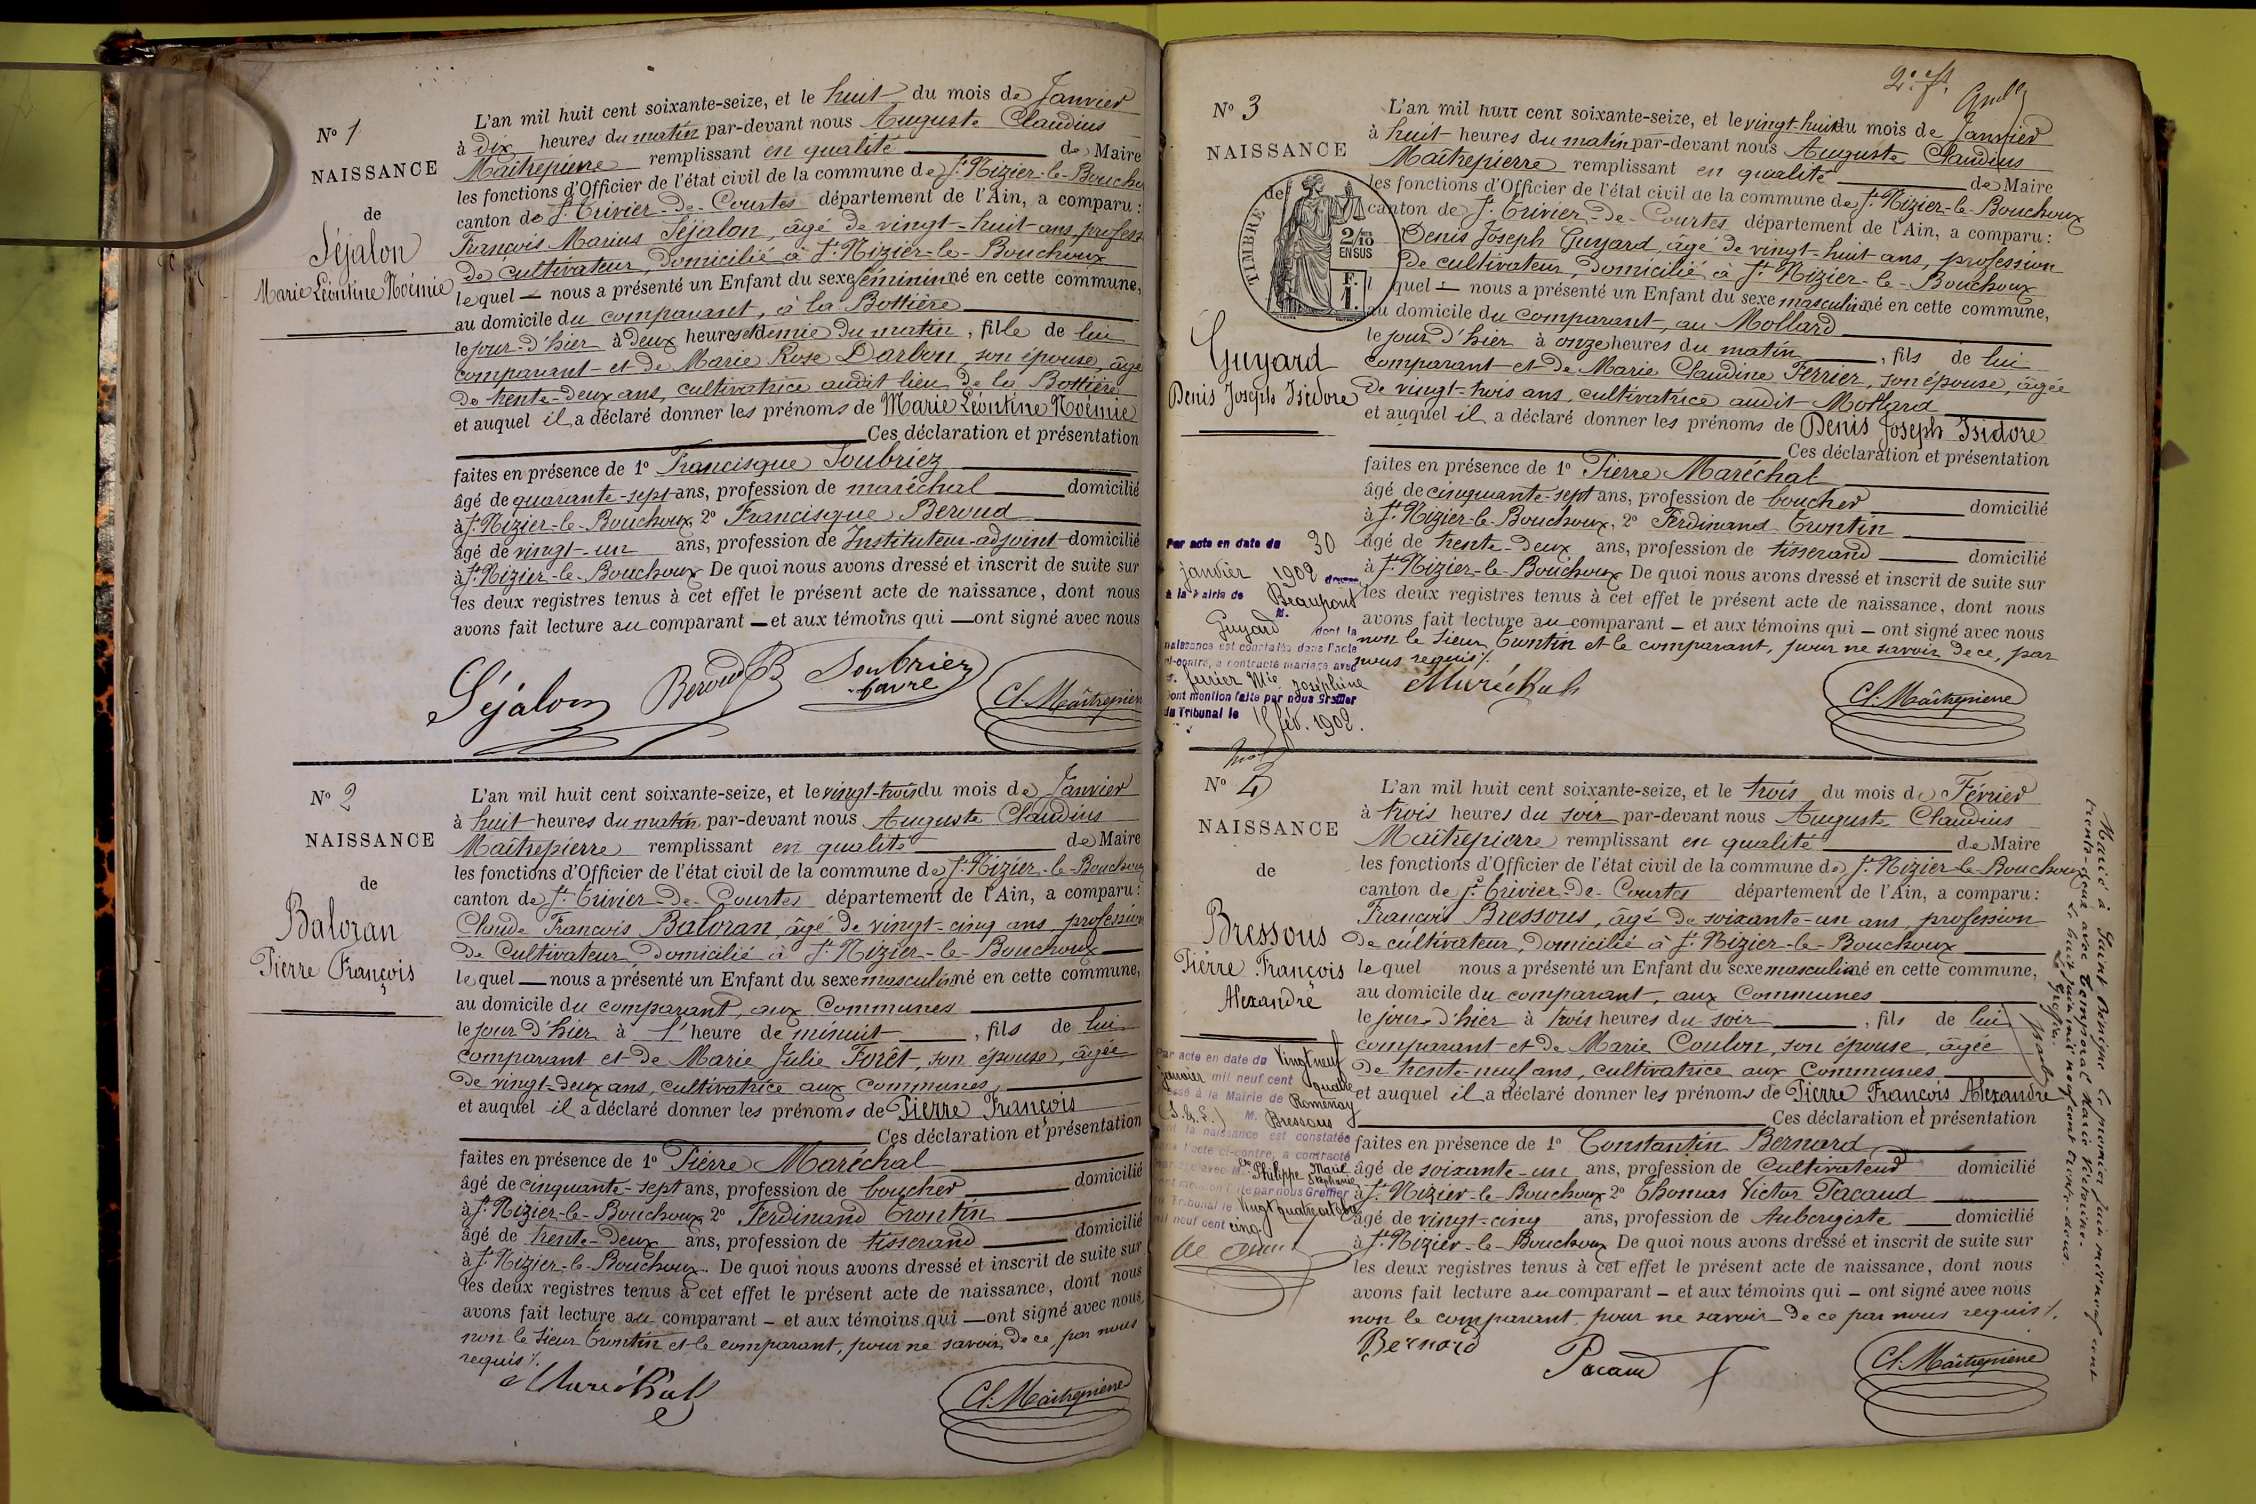 N° 1
NAISSANCE
de
Séjalon
Marie Léontine Noémie
L'an mil huit cent soixante-seize, et le huit du mois de Janvier
à dix heures du matin par-devant nous Auguste Claudius
Maîtrepierre remplissant en qualité de Maire
les fonctions d'Officier de l'état civil de la commune de St Nizier-le-Boucho
canton de St Trivier-de-Courtes département de l'Ain, a comparu :
François Marius Séjalon, âgé de vingt-huit ans, profess
de cultivateur, domicilié à St Nizier-le-Bouchoux
lequel nous a présenté un Enfant du sexe féminin né en cette commune,
au domicile du comparant, à la Bottière
le jour d'hier à deux heures et demie du matin, fille de lui
comparant et de Marie Rose Darbon, son épouse, âgé
de trente-deux ans, cultivatrice audit lieu de la Bottière
et auquel il a déclaré donner les prénoms de Marie Léontine Noémie
Ces déclaration et présentation
faites en présence de 1° Francisque Soubriez
âgé de quarante-sept ans, profession de maréchal domicilié
à St Nizier-le-Bouchoux, 2° Francisque Beroud
âgé de vingt-un ans, profession de Instituteur-adjoint domicilié
à St Nizier-le-Bouchoux De quoi nous avons dressé et inscrit de suite sur
les deux registres tenus à cet effet le présent acte de naissance, dont nous
avons fait lecture au comparant et aux témoins qui ont signé avec nous
Séjalon Beroud Soubriez
Cl. Maîtrepierre
N° 2
NAISSANCE
de
Baloran
Pierre François
L'an mil huit cent soixante-seize, et le vingt-trois du mois de Janvier
à huit heures du matin par-devant nous Auguste Claudius
Maîtrepierre remplissant en qualité de Maire
les fonctions d'Officier de l'état civil de la commune de St Nizier-le-Bouchoux
canton de St Trivier-de-Courtes département de l'Ain, a comparu :
Claude François Baloran, âgé de vingt-cinq ans profession
de Cultivateur domicilié à St Nizier-le-Bouchoux
lequel nous a présenté un Enfant du sexe masculin né en cette commune,
au domicile du comparant, aux Communes
le jour d'hier à l'heure de minuit, fils de lui
comparant et de Marie Julie Forêt, son épouse, âgée
de vingt-deux ans, cultivatrice aux communes,
et auquel il a déclaré donner les prénoms de Pierre François
Ces déclaration et présentation
faites en présence de 1° Pierre Maréchal
âgé de cinquante-sept ans, profession de boucher domicilié
à St Nizier-le-Bouchoux, 2° Ferdinand Trontin
âgé de trente-deux ans, profession de tisserand domicilié
à St Nizier-le-Bouchoux. De quoi nous avons dressé et inscrit de suite sur
les deux registres tenus à cet effet le présent acte de naissance, dont nous
avons fait lecture au comparant et aux témoins qui ont signé avec nous,
non le sieur Trontin et le comparant, pour ne savoir, de ce, par nous
requis ./.
Maréchal
Cl. Maîtrepierre
N° 3
NAISSANCE
de
TIMBRE
2/10
EN SUS
F.
1.
Guyard
Denis Joseph Isidore
L'an mil huit cent soixante-seize, et le vingt-huit du mois de Janvier
à huit heures du matin par-devant nous Auguste Claudius
Maîtrepierre remplissant en qualité de Maire
les fonctions d'Officier de l'état civil de la commune de St Nizier-le-Bouchoux
canton de St Trivier-de-Courtes département de l'Ain, a comparu :
Denis Joseph Guyard, âgé de vingt-huit ans, profession
de cultivateur, domicilié à St Nizier-le-Bouchoux
quel nous a présenté un Enfant du sexe masculin né en cette commune,
au domicile du comparant, au Mollard
le jour d'hier à onze heures du matin, fils de lui
comparant et de Marie Claudine Ferrier, son épouse, âgée
de vingt-trois ans, cultivatrice audit Mollard
et auquel il a déclaré donner les prénoms de Denis Joseph Isidore
Ces déclaration et présentation
faites en présence de 1° Pierre Maréchal
âgé de cinquante-sept ans, profession de boucher domicilié
à St Nizier-le-Bouchoux, 2° Ferdinand Trontin
âgé de trente-deux ans, profession de tisserand domicilié
à St Nizier-le-Bouchoux De quoi nous avons dressé et inscrit de suite sur
les deux registres tenus à cet effet le présent acte de naissance, dont nous
avons fait lecture au comparant et aux témoins qui ont signé avec nous
non le sieur Trontin et le comparant, pour ne savoir de ce, par
nous requis ./.
Maréchal
Cl. Maîtrepierre
Par acte en date du 30
janvier 1902 dressé
à la Mairie de Beaupont
M.
Guyard dont la
naissance est constatée dans l'acte
ci-contre, a contracté mariage avec
ferrier Mie Joséphine
Dont mention faite par nous Greffier
du Tribunal le
fév. 1902.
N° 4
NAISSANCE
de
Bressous
Pierre François
Alexandre
L'an mil huit cent soixante-seize, et le trois du mois de Février
à trois heures du soir par-devant nous Auguste Claudius
Maîtrepierre remplissant en qualité de Maire
les fonctions d'Officier de l'état civil de la commune de St Nizier-le-Bouchoux
canton de St Trivier-de-Courtes département de l'Ain, a comparu :
François Bressous, âgé de soixante-un ans, profession
de cultivateur, domicilié à St Nizier-le-Bouchoux
lequel nous a présenté un Enfant du sexe masculin né en cette commune,
au domicile du comparant, aux Communes
le jour d'hier à trois heures du soir, fils de lui
comparant et de Marie Coulon, son épouse, âgée
de trente-neuf ans, cultivatrice aux Communes
et auquel il a déclaré donner les prénoms de Pierre François Alexandre
Ces déclaration et présentation
faites en présence de 1° Constantin Bernard,
âgé de soixante-un ans, profession de Cultivateur domicilié
à St Nizier-le-Bouchoux 2° Thomas Victor Pacaud
âgé de vingt-cinq ans, profession de Aubergiste domicilié
à St Nizier-le-Bouchoux De quoi nous avons dressé et inscrit de suite sur
les deux registres tenus à cet effet le présent acte de naissance, dont nous
avons fait lecture au comparant et aux témoins qui ont signé avec nous
non le comparant, pour ne savoir de ce par nous requis ./.
Bernard
Pacaud
Cl. Maîtrepierre
Par acte en date du Vingt neuf
janvier mil neuf cent quatre
dressé à la Mairie de Romenay
(S. & L.) M. Bressous
dont la naissance est constatée
dans l'acte ci-contre, a contracté
mariage avec M. elle Philippe Marie Stéphanie
Dont mention faite par nous Greffier
du Tribunal le Vingt quatre octobre
mil neuf cent cinq
Marié à Saint Bénigne le premier Juin mil neuf cent
trente-deux avec Temporal Marie Victorine.
Le huit Juin mil neuf cent trente-deux.
Le Greffier.